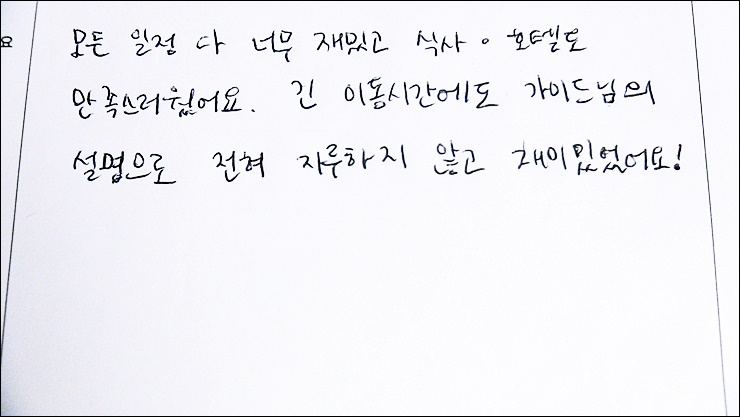 요
모든 일정 다 너무 재밌고 식사·호텔도
만족스러웠어요. 긴 이동시간에도 가이드님의
설명으로 전혀 지루하지 않고 재미있었어요!